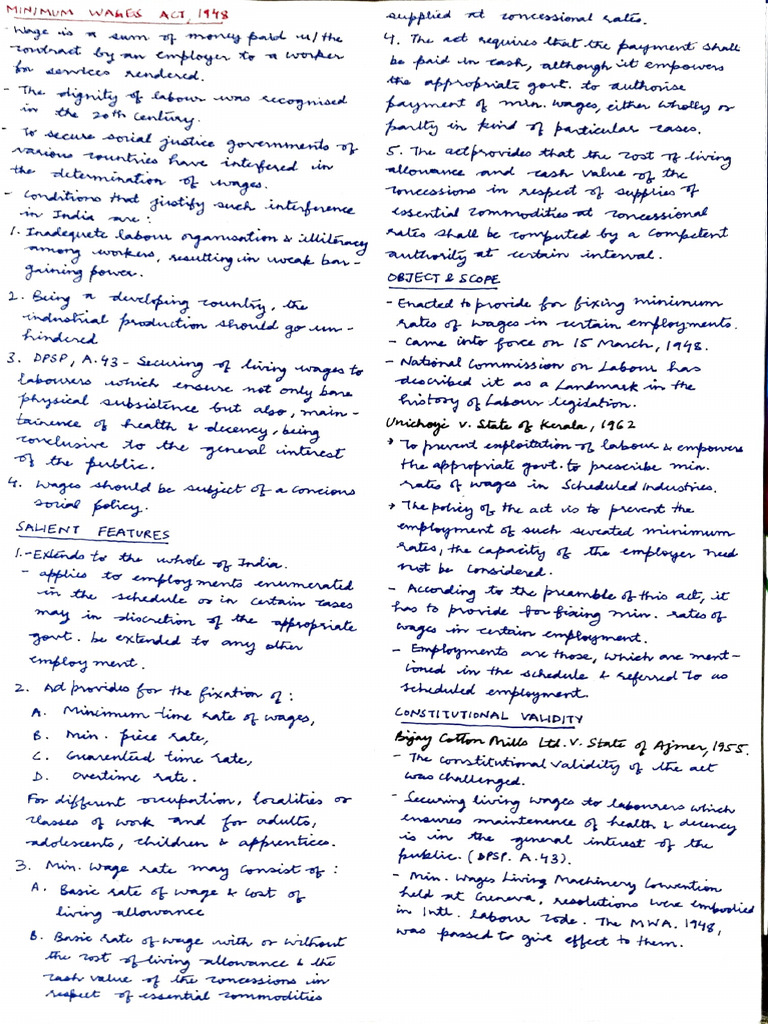 MINIMUM WAGES ACT, 1948
- Wage is a sum of money paid u/the
contract by an employer to a worker
for services rendered.
- The dignity of labour was recognised
in the 20th century.
- To secure social justice governments of
various countries have interfered in
the determination of wages.
- Conditions that justify such interference
in India are:
1. Inadequate labour organisation & illiteracy
among workers, resulting in weak bar-
gaining power.
2. Being a developing country, the
industrial production should go un-
hindered
3. DPSP, A.43 - Securing of living wages to
labourers which ensure not only bare
physical subsistence but also, main-
tainence of health & decency, being
conclusive to the general interest
of the public.
4. Wages should be subject of a concious
social policy.
SALIENT FEATURES
1.- Extends to the whole of India.
- applies to employments enumerated
in the schedule or in certain cases
may in discretion of the appropriate
govt. be extended to any other
employment.
2. Act provides for the fixation of:
A. Minimum time rate of wages,
B. Min. piece rate,
C. Guarenteed time rate,
D. Overtime rate.
For different occupation, localities or
classes of work and for adults,
adolescents, children & apprentices.
3. Min. wage rate may consist of:
A. Basic rate of wage & cost of
living allowance
B. Basic rate of wage with or without
the cost of living allowance & the
cash value of the concessions in
respect of essential commodities
supplied at concessional rates.
4. The act requires that the payment shall
be paid in cash, although it empowers
the appropriate govt. to authorise
payment of min. wages, either wholly or
partly in kind of particular cases.
5. The act provides that the cost of living
allowance and cash value of the
concessions in respect of supplies of
essential commodities at concessional
rates shall be computed by a competent
authority at certain interval.
OBJECT & SCOPE
- Enacted to provide for fixing minimum
rates of wages in certain employments.
- Came into force on 15 March, 1948.
- National Commission on Labour has
described it as a Landmark in the
history of Labour legislation.
Unichoyi v. State of Kerala, 1962
→ To prevent exploitation of labour & empowers
the appropriate govt. to prescribe min.
rates of wages in Scheduled Industries.
→ The policy of the act is to prevent the
employment of such sweated minimum
rates, the capacity of the employer need
not be considered.
- According to the preamble of this act, it
has to provide for fixing min. rates of
wages in certain employment.
- Employments are those, which are ment-
ioned in the schedule & referred to as
scheduled employment.
CONSTITUTIONAL VALIDITY
Bijay Cotton Mills Ltd. v. State of Ajmer, 1955.
- The constitutional validity of the act
was challenged.
- Securing living wages to labourers which
ensures maintenence of health & decency
is in the general interest of the
public. (DPSP. A.43).
- Min. Wages Living Machinery Convention
held at Geneva, resolutions were embodied
in Intl. Labour Code. The MWA. 1948,
was passed to give effect to them.